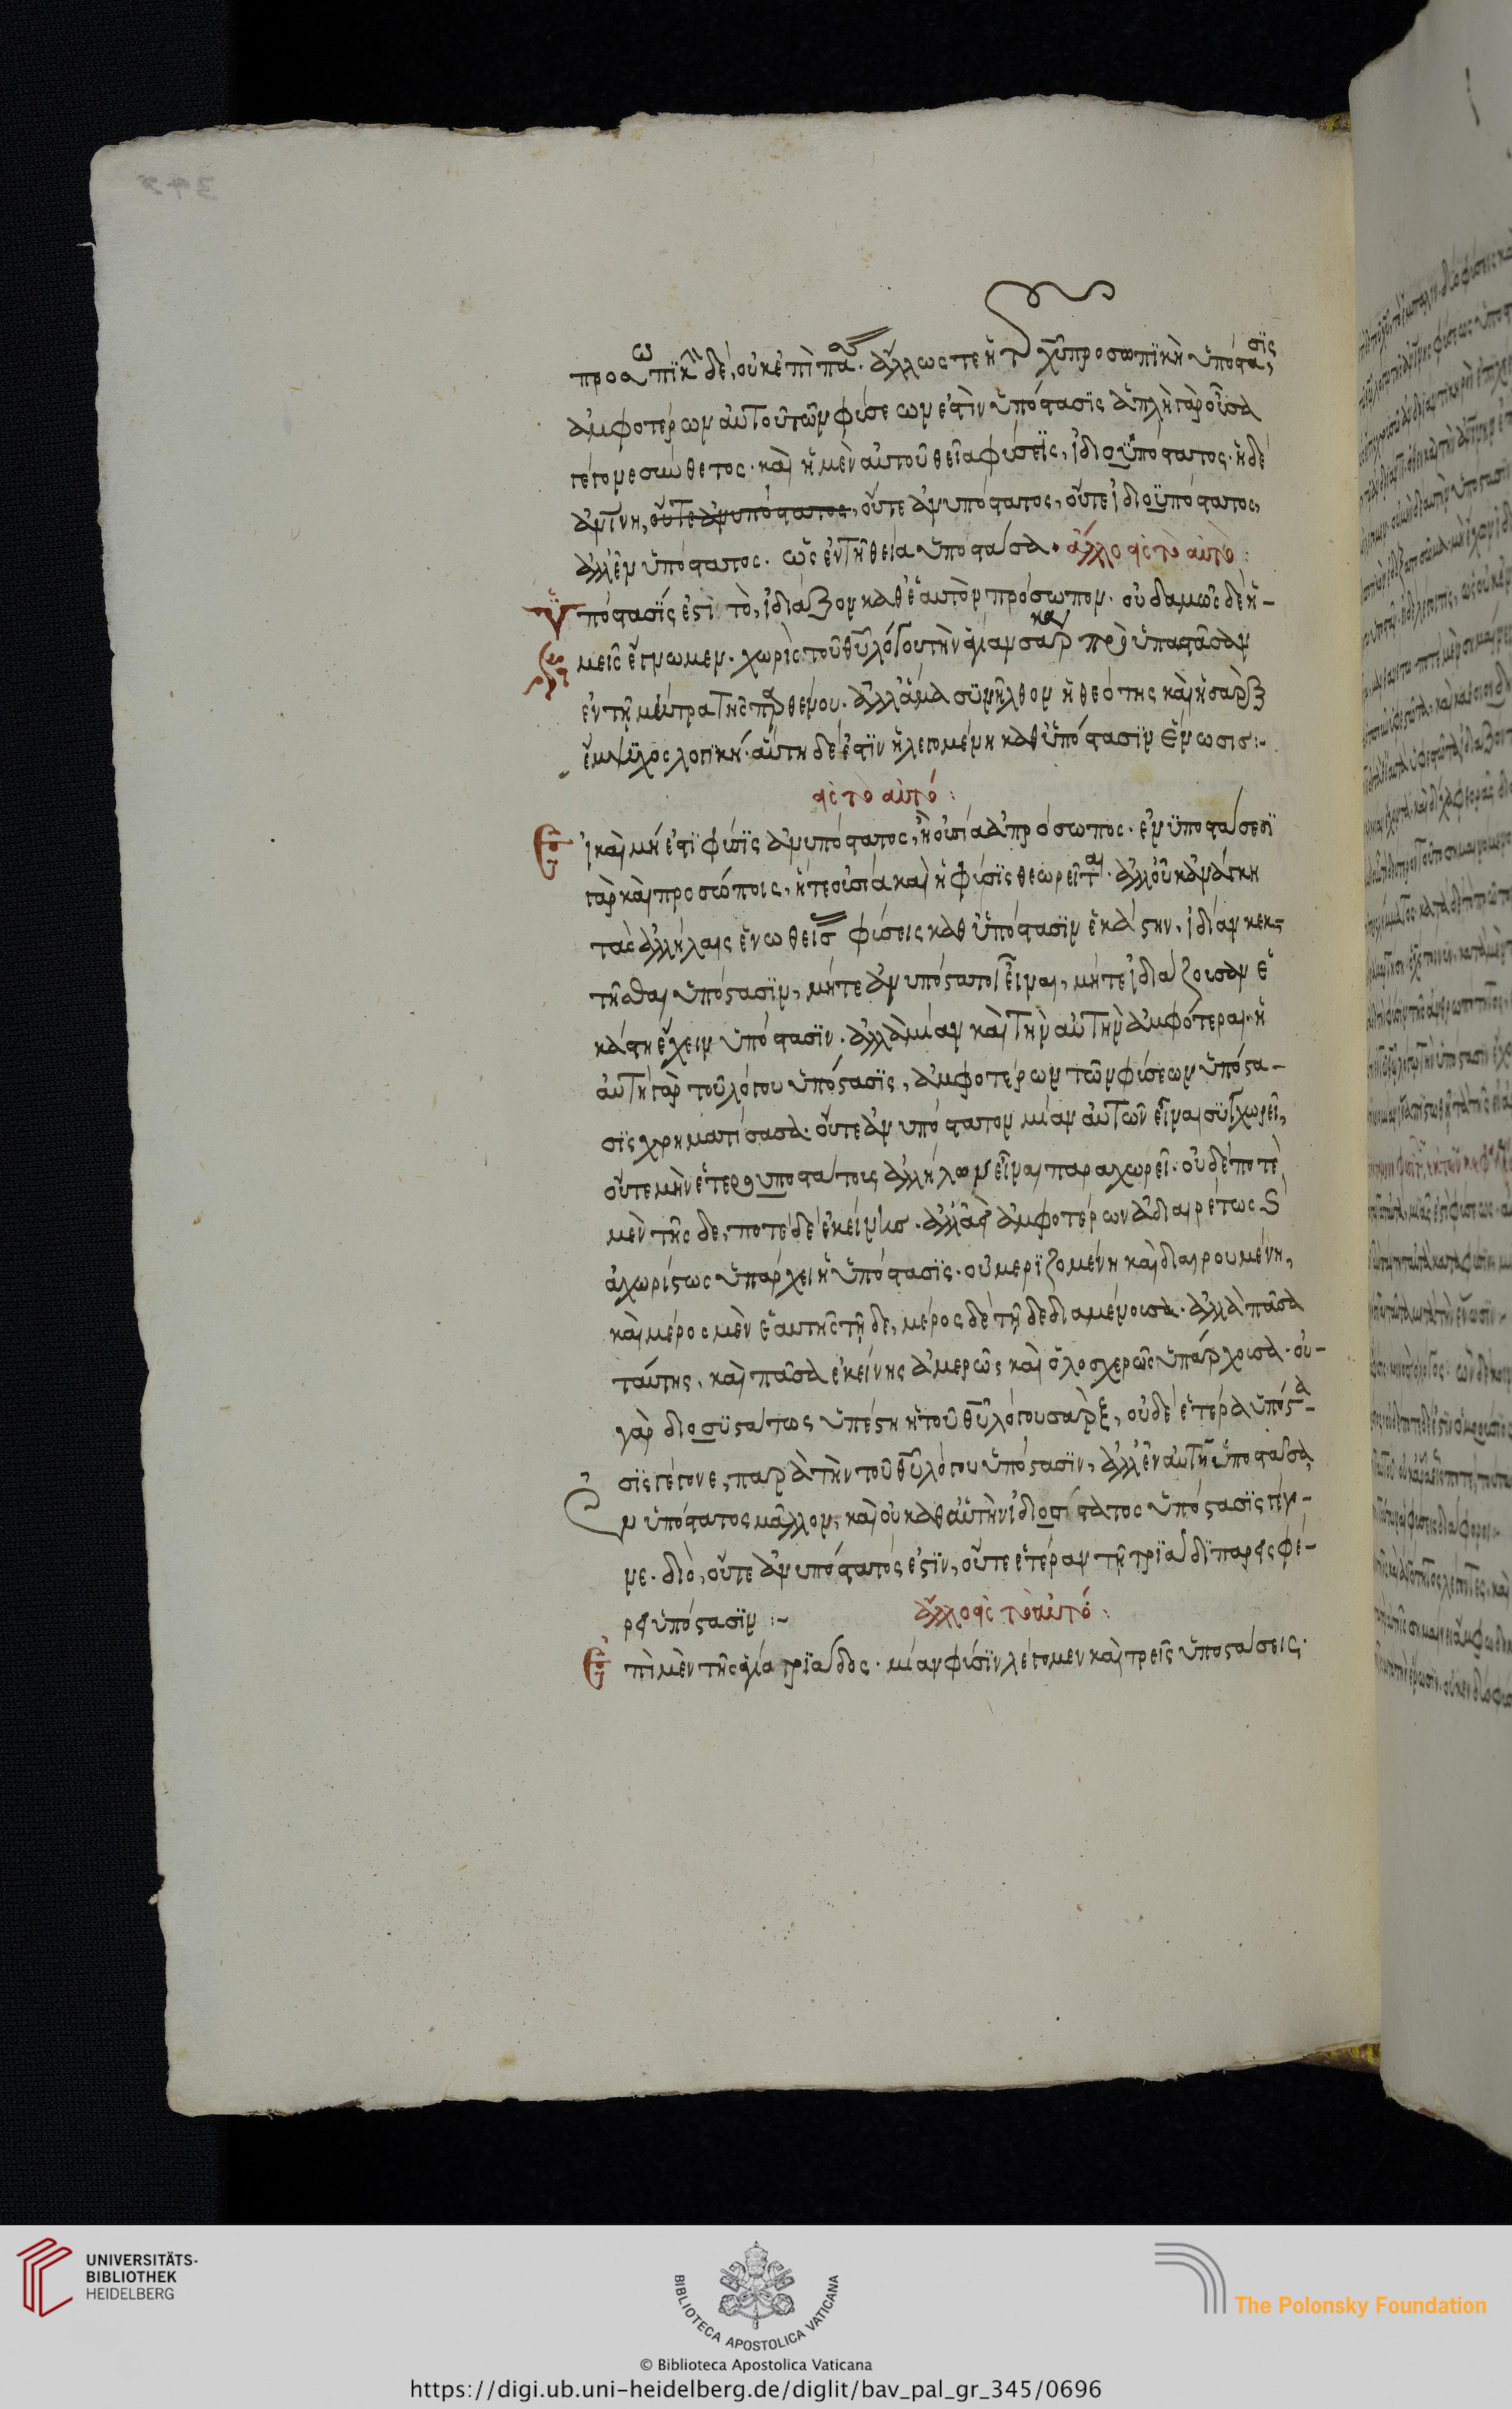 προσωπϊκὴ δὲ, οὐκέτι πα. ἄλλως τε ἡ τοῦ χ̅υ̅ προσωπϊκὴ ὑπόστασϊς
ἀμφοτέρων αὐτοῦ τῶν φύσεων ἐστὶν ὑπόστασϊς ἁπλῆ γὰρ οὖσα
γέγονε σύνθετος. καὶ ἡ μὲν αὐτοῦ θεία φύσεϊς, ἰδιοϋπόστατος. ἡ δὲ
οὔτε ἀνυπόστατος, οὔτε ἀνυπόστατος, οὔτε ἰδιοϋπόστατος,
ἀλλ' ἐνυπόστατος. ὡς ἐν τῆ θεία ὑποστάσει. ἄλλο εἰς τὸ αὐτὸ:
Ὑπόστασϊς ἐστὶ τὸ, ἰδιάζον καθ' ἑαυτὸν πρόσωπον. οὐδαμῶς δὲ ἡ-
μεῖς ἔγνωμεν. χωρὶς τοῦ θ̅υ̅ λόγου τὴν ἁγίαν σάρκα ὑποστᾶσαν
ἐν τῆ μήτρα τῆς παρθένου. ἀλλ' ἅμα συνῆλθον ἡ θεότης καὶ ἡ σὰρξ
ἔμψυχος λογϊκή. αὕτη δὲ ἐστϊν ἡ λεγομένη καθ' ὑπόστασϊν ἕνωσις:-
εἰς τὸ αὐτό:
Εἰ καὶ μή ἐστϊ φύσϊς ἀνυπόστατος, ἢ οὐσία ἀπρόσωπος. ἐν ὑποστάσεσϊ
γὰρ καὶ προσώποις, ἥ τε οὐσία καὶ ἡ φύσϊς θεωρεῖται. ἀλλ' οὐκ ἀνάγκη
τὰς ἀλλήλαις ἑνωθείσας φύσεις καθ' ὑπόστασϊν ἑκάστην, ἰδίαν κεκ-
τῆσθαι ὑπόστασϊν, μήτε ἀνυπόστατοι εἶναι, μήτε ἰδιάζουσαν ἑ
κάστη ἔχειν ὑπόστασϊν. ἀλλὰ μίαν καὶ τὴν αὐτὴν ἀμφότεραι. ἡ
αὐτὴ γὰρ τοῦ λόγου ὑπόστασϊς, ἀμφοτέρων τῶν φύσεων ὑπόστα-
σϊς χρηματίσασα. οὔτε ἀνυπόστατον μίαν αὐτῶν εἶναι συγχωρεῖ,
οὔτε μὴν ἑτεροϋποστάτους ἀλλήλων εἶναι παραχωρεῖ. οὐδέποτὲ
μὲν τῆς δε, ποτὲ δὲ ἐκείνης. ἀλλ' ἀεὶ ἀμφοτέρων ἀδιαιρέτως καὶ
ἀχωρίστως ὑπάρχει ἡ ὑπόστασϊς. οὐ μερϊζομένη καὶ διαιρουμένη,
καὶ μέρος μὲν ἑαυτῆς τῆ δε, μέρος δὲ τῆ δε διαμένουσα. ἀλλὰ πᾶσα
ταύτης, καὶ πᾶσα ἐκείνης ἀμερῶς καὶ ὁλοσχερῶς ὑπάρχουσα. οὐ-
γὰρ διοσϋστάτως ὑπέστη ἡ τοῦ θ̅υ̅ λόγου σὰρξ, οὐδὲ ἑτέρα ὑπόστα-
σϊς γέγονε, παρὰ τὴν τοῦ θ̅υ̅ λόγου ὑπόστασϊν, ἀλλ' ἐν αὐτῆ ὑποστάσα,
ἐνυπόστατος μᾶλλον, καὶ οὐ καθ' αὑτὴν ἰδιοσύστατος ὑπόστασϊς γέγο-
νε. διὸ, οὔτε ἀνυπόστατός ἐστϊν, οὔτε ἑτέραν τῆ τρϊάδϊ παρεισφέ-
ρει ὑπόστασϊν:- ἄλλο εἰς τὸ αὐτό:
Ἐπὶ μὲν τῆς ἁγία τρϊάδος. μίαν φύσϊν λέγομεν καὶ τρεῖς ὑποστάσεις.
UNIVERSITÄTS-
BIBLIOTHEK
HEIDELBERG
BIBLIOTECA APOSTOLICA VATICANA
The Polonsky Foundation
© Biblioteca Apostolica Vaticana
https://digi.ub.uni-heidelberg.de/diglit/bav_pal_gr_345/0696